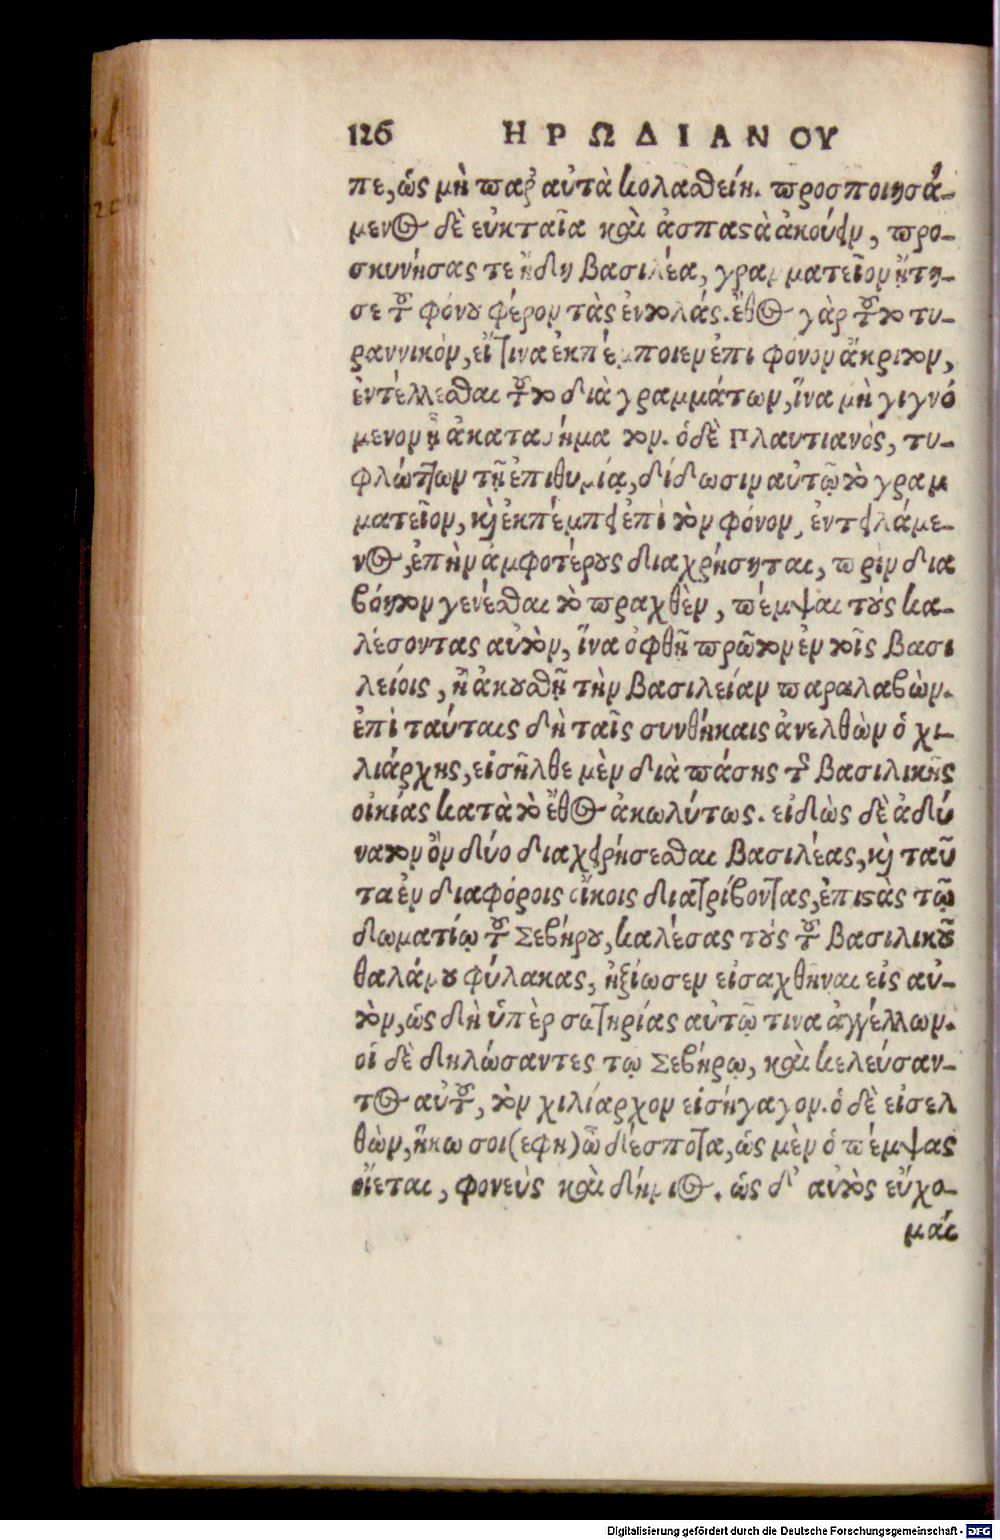 126 ΗΡΩΔΙΑΝΟΥ
πε, ὡς μὴ παρ' αὐτὰ κολασθείη. προσποιησά-
μενος δὲ εὐκταῖα καὶ ἀσπαστὰ ἀκούειν, προ-
σκυνήσας τε ἤδη βασιλέα, γραμματεῖον ᾔτη-
σε τοῦ φόνου φέρον τὰς ἐντολάς. ἔθος γὰρ τοῦτο τυ-
ραννικόν, εἴ τινα ἐκπέμποιεν ἐπι φόνον ἄκριτον,
ἐντέλλεσθαι τοῦτο διὰ γραμμάτων, ἵνα μὴ γιγνό
μενον ᾖ ἀκατασήμαντον. ὁ δὲ Πλαυτιανὸς, τυ-
φλώττων τῇ ἐπιθυμίᾳ, δίδωσιν αὐτῷ τὸ γραμ
ματεῖον, καὶ ἐκπέμπει ἐπὶ τὸν φόνον, ἐντειλάμε-
νος, ἐπὴν ἀμφοτέρους διαχρήσηται, πρὶν δια
βόητον γενέσθαι τὸ πραχθὲν, πέμψαι τοὺς κα-
λέσοντας αὐτὸν, ἵνα ὀφθῇ πρῶτον ἐν τοῖς βασι
λείοις, ἢ ἀκουσθῇ τὴν βασιλείαν παραλαβὼν.
ἐπὶ ταύταις δὴ ταῖς συνθήκαις ἀνελθὼν ὁ χι-
λιάρχης, εἰσῆλθε μὲν διὰ πάσης τῆς βασιλικῆς
οἰκίας κατὰ τὸ ἔθος ἀκωλύτως. εἰδὼς δὲ ἀδύ
νατον ὂν δύο διαχειρήσεσθαι βασιλέας, καὶ ταῦ
τα ἐν διαφόροις οἴκοις διατρίβοντας, ἐπιστὰς τῷ
δωματίῳ τοῦ Σεβήρου, καλέσας τοὺς τοῦ βασιλικοῦ
θαλάμου φύλακας, ἠξίωσεν εἰσαχθῆναι εἰς αὐ-
τὸν, ὡς δὴ ὑπὲρ σωτηρίας αὐτῷ τινα ἀγγέλλων.
οἱ δὲ δηλώσαντες τῳ Σεβήρῳ, καὶ κελεύσαν-
τος αὐτοῦ, τὸν χιλίαρχον εἰσήγαγον. ὁ δὲ εἰσελ
θὼν, ἥκω σοι (εφη) ὦ δέσποτα, ὡς μὲν ὁ πέμψας
οἴεται, φονεὺς καὶ δήμιος. ὡς δ' αὐτὸς εὔχο-
μαι
Digitalisierung gefördert durch die Deutsche Forschungsgemeinschaft - DFG